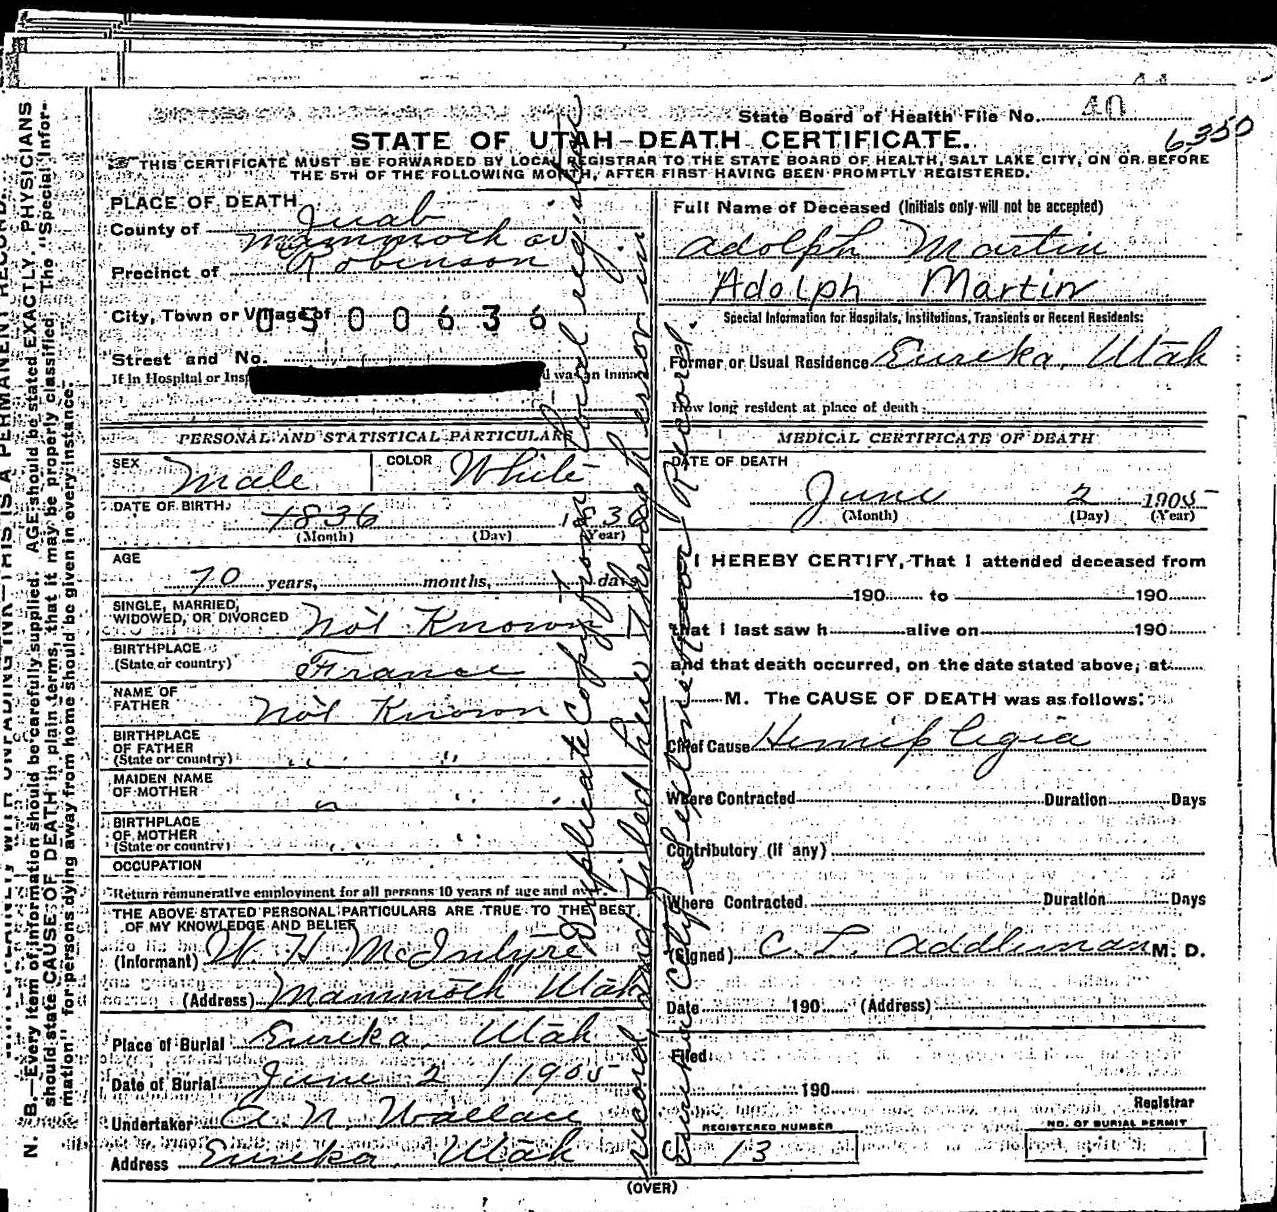 State Board of Health File No. 40
6350
STATE OF UTAH–DEATH CERTIFICATE.
THIS CERTIFICATE MUST BE FORWARDED BY LOCAL REGISTRAR TO THE STATE BOARD OF HEALTH, SALT LAKE CITY, ON OR BEFORE
THE 5TH OF THE FOLLOWING MONTH, AFTER FIRST HAVING BEEN PROMPTLY REGISTERED.
PLACE OF DEATH
County of Juab
Mammoth or
Precinct of Robinson
City, Town or Village of
0500636
Street and No.
If in Hospital or
PERSONAL AND STATISTICAL PARTICULARS
SEX Male COLOR White
DATE OF BIRTH. 1836 1836
(Month) (Day) (Year)
AGE
70 years, months, days
SINGLE, MARRIED,
WIDOWED, OR DIVORCED Not Known
BIRTHPLACE
(State or country) France
NAME OF
FATHER Not Known
BIRTHPLACE
OF FATHER
(State or country) " "
MAIDEN NAME
OF MOTHER " "
BIRTHPLACE
OF MOTHER
(State or country) "
OCCUPATION
Return remunerative employment for all persons 10 years of age and over.
THE ABOVE STATED PERSONAL PARTICULARS ARE TRUE TO THE BEST
OF MY KNOWLEDGE AND BELIEF
(Informant) W. H. McIntyre
(Address) Mammoth Utah
Place of Burial Eureka, Utah
Date of Burial June 2 / 1905
Undertaker A. N. Wallace
Address Eureka, Utah
Full Name of Deceased (Initials only will not be accepted)
Adolph Martin
Adolph Martin
Special Information for Hospitals, Institutions, Transients or Recent Residents:
Former or Usual Residence Eureka, Utah
How long resident at place of death
MEDICAL CERTIFICATE OF DEATH
DATE OF DEATH
June 2 1905
(Month) (Day) (Year)
I HEREBY CERTIFY, That I attended deceased from
190 to 190
that I last saw h alive on 190
and that death occurred, on the date stated above, at
M. The CAUSE OF DEATH was as follows:
Chief Cause Hemiplegia
Where Contracted Duration Days
Contributory (if any)
Where Contracted Duration Days
(Signed) C. L. Addleman M. D.
Date 190 (Address)
Filed
190
Registrar
REGISTERED NUMBER
13
NO. OF BURIAL PERMIT
(OVER)
Duplicate copy from local registrar
record and filed here through error in
Eureka City
Record.
N. B.—Every item of information should be carefully supplied. AGE should be stated EXACTLY. PHYSICIANS
should state CAUSE OF DEATH in plain terms, that it may be properly classified. The "Special Infor-
mation" for persons dying away from home should be given in every instance.